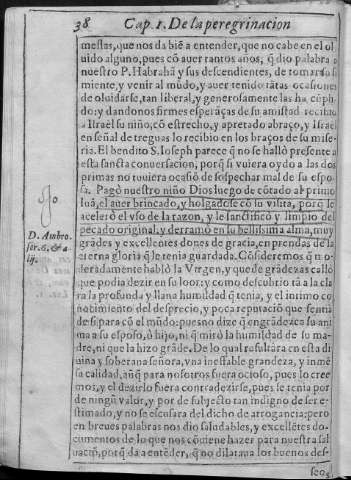 38 Cap. I. De la peregrinacion
mestas, que nos da biẽ a entender, que no cabe en el ol
uido alguno, pues cõ auer tantos años, q̃ dio palabra a
nuestro P. Habrahã y sus descendientes, de tomar su si
miente, y venir al mũdo, y auer tenido tãtas ocasiones
de oluidarse, tan liberal, y generosamente las ha cũpli-
do: y dandonos firmes esperãças de su amistad recibio
a Israel su niño, cõ estrecho, y apretado abraço, y Israel
en señal de treguas lo recibio en los braços de su mise-
ria. El bendito S. Ioseph parece q̃ no se hallò presente a
esta sancta conuersacion, porq̃ si vuiera oydo a las dos
primas no vuiera ocasiõ de sospechar mal de su espo-
sa. Pagò nuestro niño Dios luego de cõtado al primo
Iuã, el auer brincado, y holgadose cõ su visita, porq̃ le
acelerò el vso de la razon, y le sanctificò y limpio del
pecado original, y derramò en su bellissima alma, muy
D. Ambro.
grãdes y excellentes dones de gracia, en prendas de la
ser. 6. & a-
eterna gloria q̃ le tenia guardada. Cõsideremos q̃ mo
lij.
deradamente hablò la Virgen, y que de grãdezas callò
que podia dezir en su loor: y como descubrio tã a la cla
ra la profunda y llana humildad q̃ tenia, y el intimo co
nocimiento del desprecio, y poca reputaciõ que sentia
de si para cõ el mũdo: pues no dize q̃ engrãdezca su ani
ma a su esposo, ò hijo, ni q̃ mirò la humildad de su ma-
dre, ni que la hizo grãde. De lo qual resultàra en esta di
uina y soberana señora, vna inefable grandeza, y inmẽ
sa calidad, aũq̃ para nosotros fuera ocioso, pues lo cree
mos, y el dezirlo fuera contradezirse, pues se tenia por
de ningũ valor, y por de subjecto tan indigno de ser es-
timado, y no se escusara del dicho de arrogancia; pero
en breues palabras nos dio saludables, y excellẽtes do-
cumentos de lo que nos cõuiene hazer para nuestra sal
uaciõ, porq̃ da a entẽder, q̃ no dilataua los buenos des-
seos,